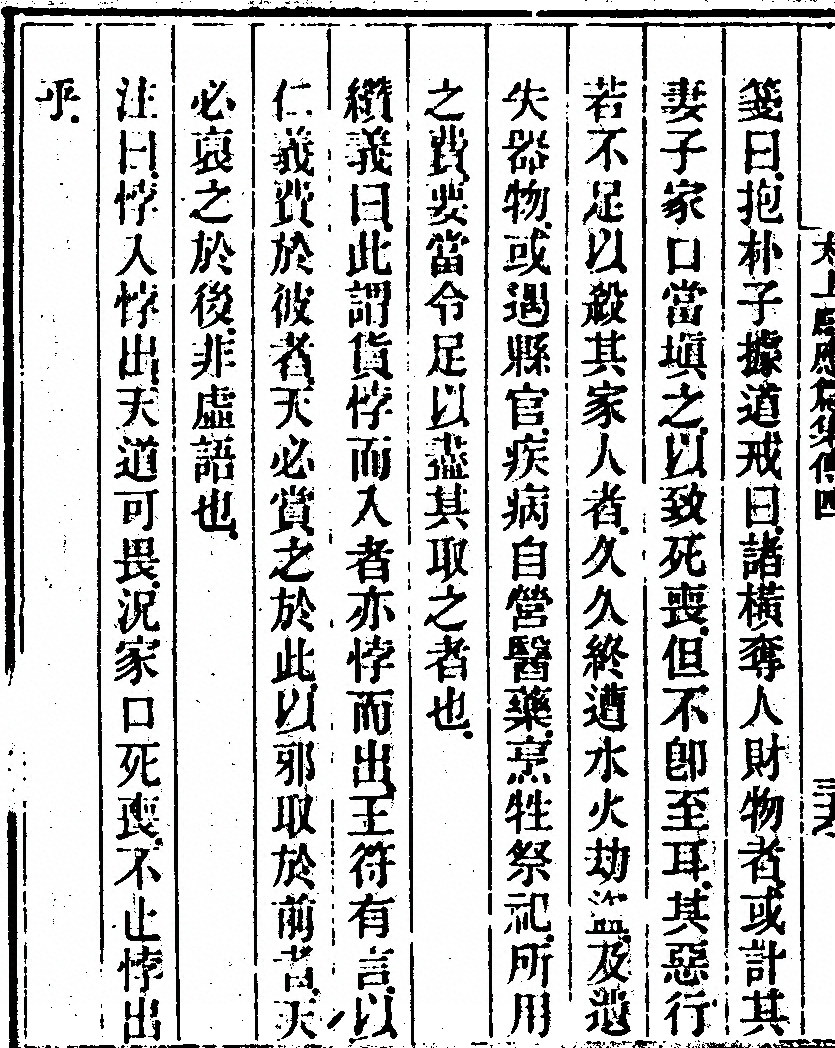 太上感應篇集傳四
箋曰抱朴子據道戒曰諸橫奪人財物者或計其
妻子家口當塡之以致死喪但不卽至耳其惡行
若不足以殺其家人者久久終遭水火劫盜及遺
失器物或遇縣官疾病自營醫藥烹牲祭祀所用
之費要當令足以盡其取之者也
纘義曰此謂貨悖而入者亦悖而出王符有言以
仁義費於彼者天必賞之於此以邪取於前者天
必衰之於後非虛語也
注曰悖入悖出天道可畏況家口死喪不止悖出
乎